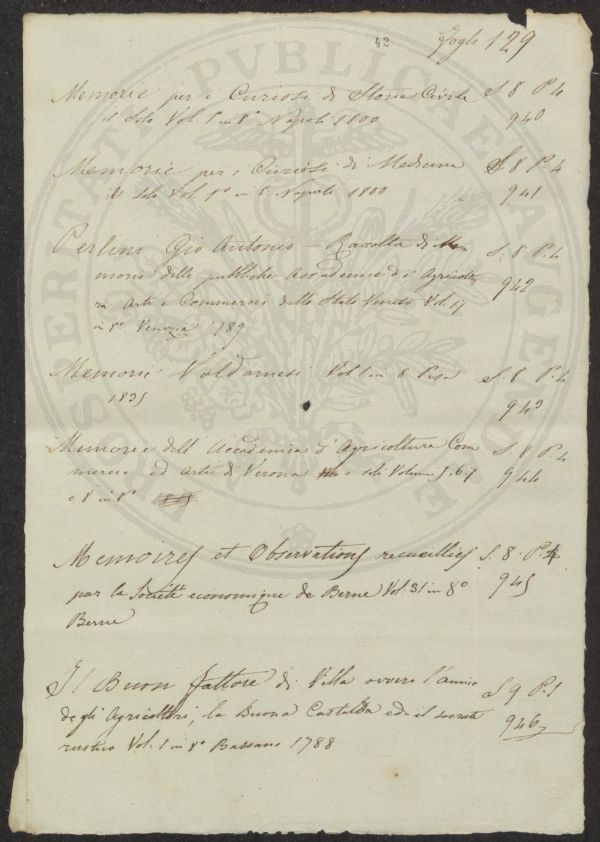 42
Fogli 129
Memorie per i Curiosi di Storia Civile S. 8 P. 4
il solo Vol. 1° in 8° Napoli 1800 940
Memorie per i Curiosi di Medicina S. 8 P. 4
il solo Vol. 1° in 8 Napoli 1800 941
Perlini Gio Antonio – Raccolta di Me S. 8 P. 4
morie delle pubbliche Accademie di Agricoltu 942
ra Arti e Commercio dello Stato Veneto Vol. 17
in 8° Venezia 1789
Memorie Valdarnesi Vol. 1 in 8 Pisa S. 8 P. 4
1835 943
Memorie dell Accademia d'Agricoltura Com S. 8 P. 4
mercio ed Arti di Verona i soli Volumi 5. 6. 7 944
e 8 in 8°
Memoires et Observations recueillies S. 8. P. 4
par la Societé economique de Berne Vol. 31 in 8° 945
Berne
Il Buon fattore di Villa ovvero l'amico S 9 P. 1
degli Agricoltori, la Buona Castalda ed il secreto 946
rustico Vol. 1 in 8° Bassano 1788